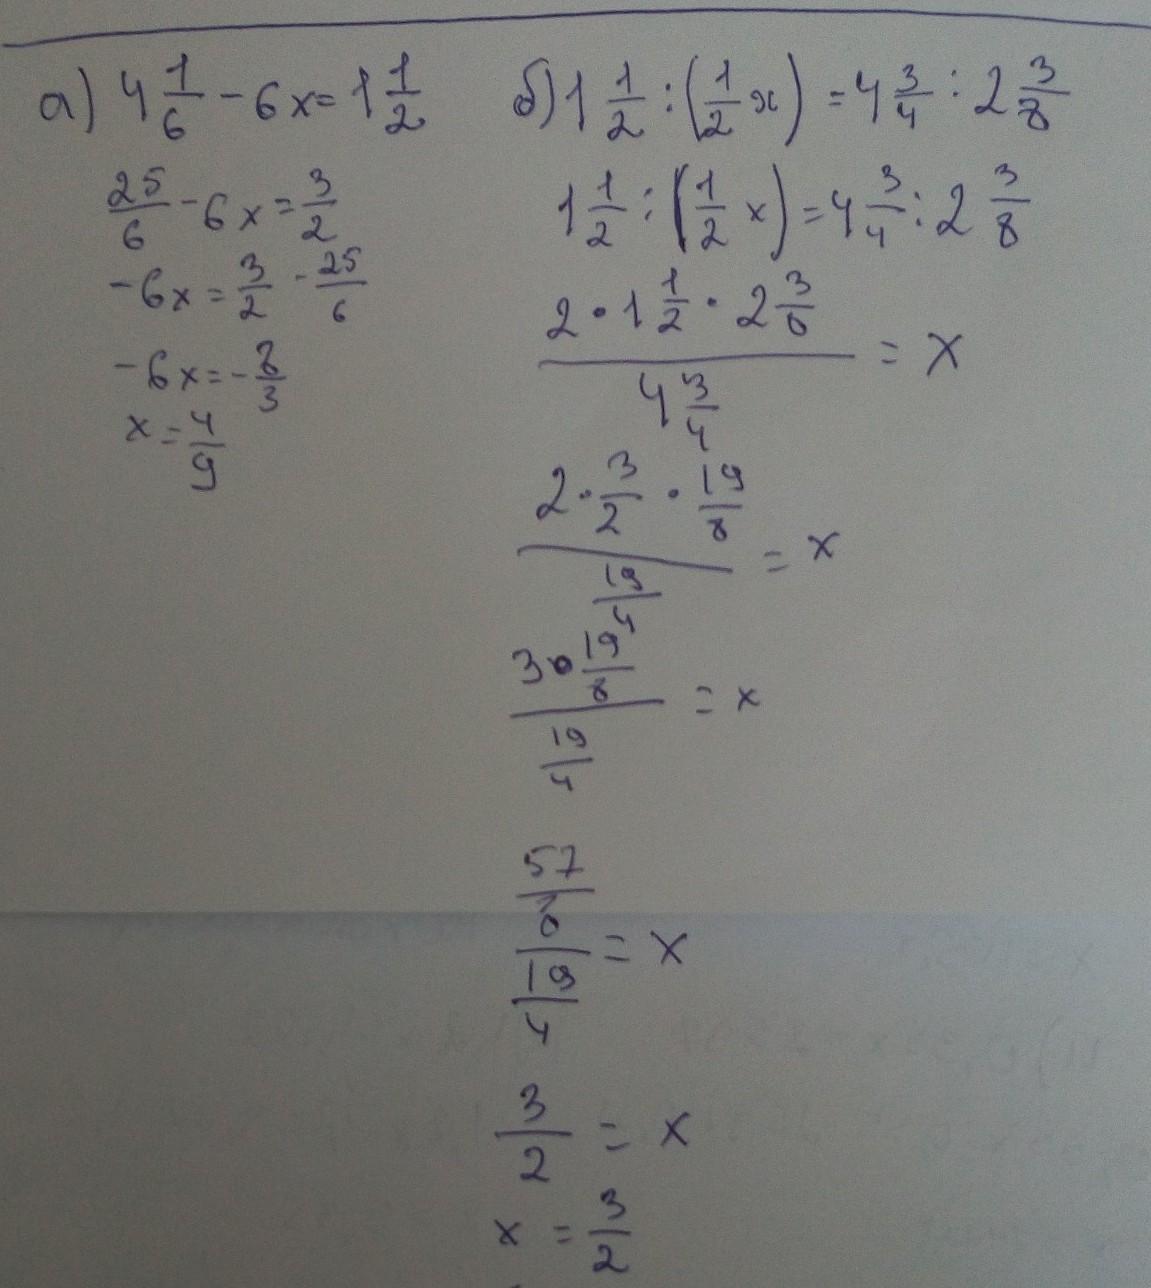 а) 4 1/6 - 6x = 1 1/2
25/6 - 6x = 3/2
-6x = 3/2 - 25/6
-6x = -8/3
x = 4/9
б) 1 1/2 : (1/2 x) = 4 3/4 : 2 3/8
1 1/2 : (1/2 x) = 4 3/4 : 2 3/8
(2 · 1 1/2 · 2 3/8) / (4 3/4) = X
(2 · 3/2 · 19/8) / (19/4) = x
(3 · 19/8) / (19/4) = x
(57/8) / (19/4) = x
3/2 = x
x = 3/2